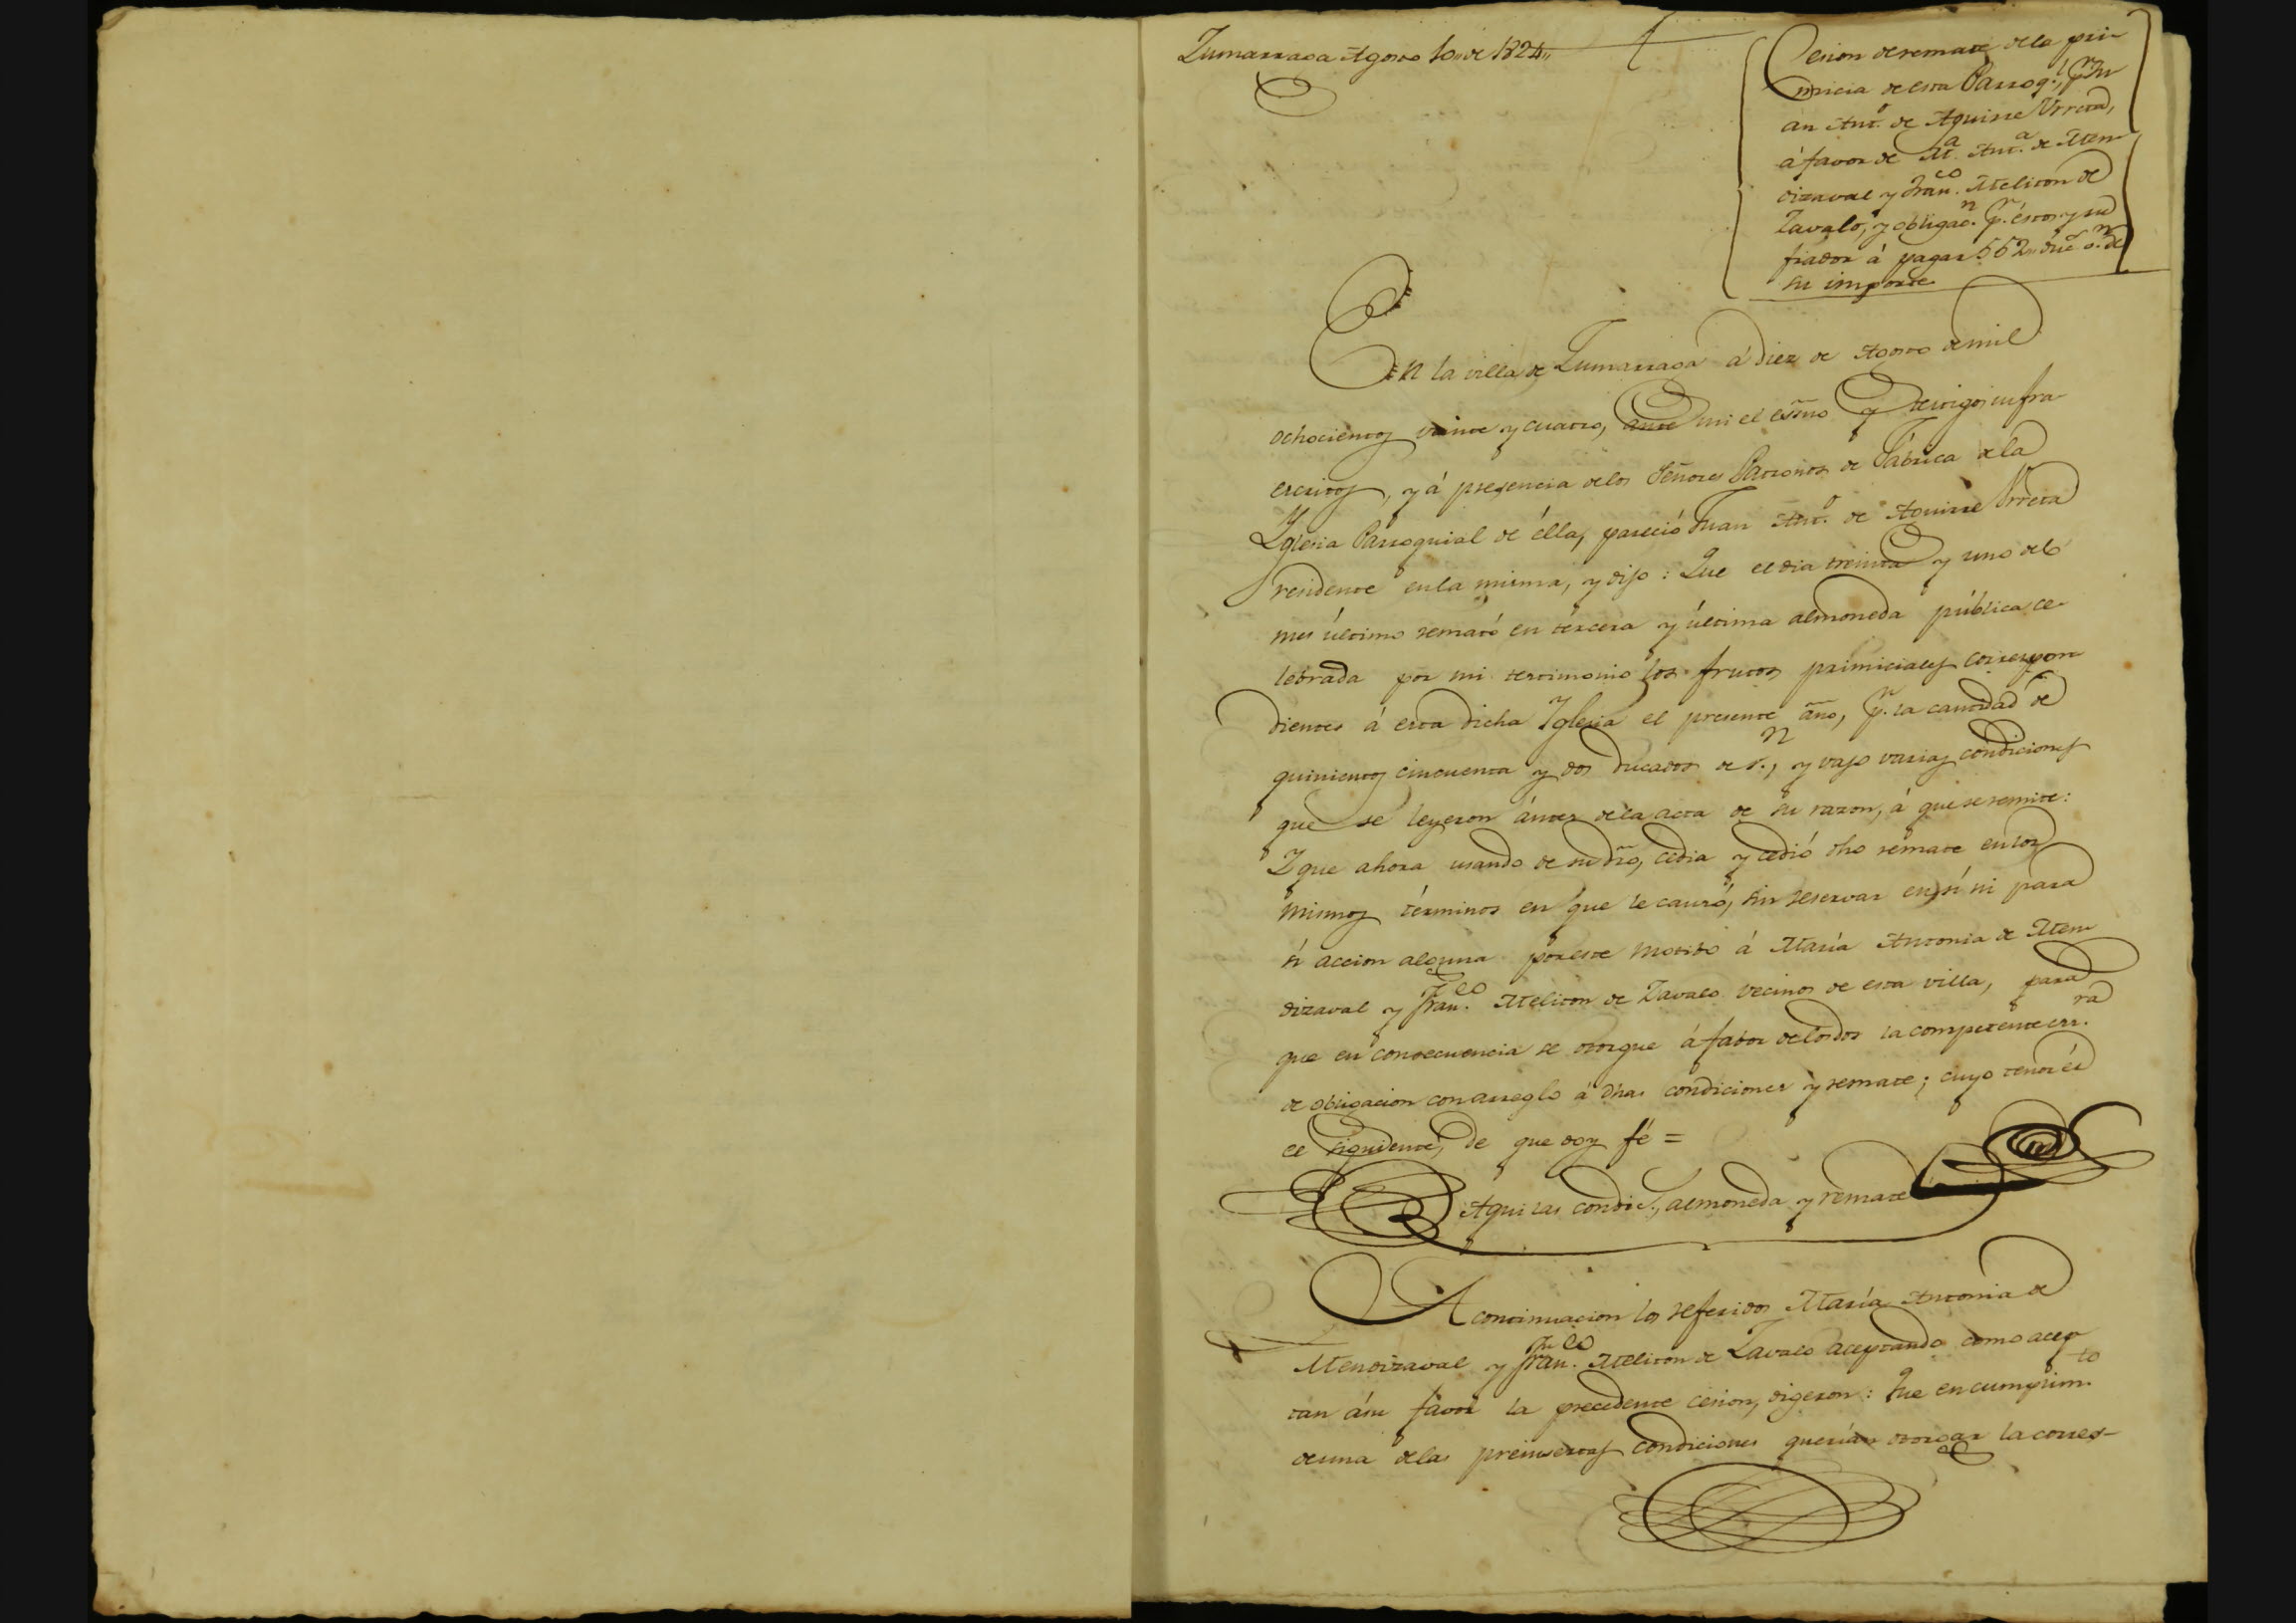 Zumarraga Agosto 10,, de 1824,,
Cesion de remate de la pri-
micia de esta Parroq.l, p.r Ju-
an Ant.o de Aguirre Urreta,
á favor de M.a Ant.a de Men-
dizaval y Fran.co Meliton de
Zavalo, y obligac.n p.r éstos y su
fiador á pagar 552,, duc.s v.n de
su importe
En la villa de Zumarraga á diez de Agosto de mil
ochocientos veinte y cuatro, ante mi el esño y testigos infra-
escritos, y á presencia de los Señores Patronos de Fábrica de la
Yglesia Parroquial de élla, pareció Juan Ant.o de Aguirre Urreta
residente en la misma, y dijo: Que el dia treinta y uno del
mes último remató en tércera y última almoneda pública ce-
lebrada por mi testimonio los frutos primiciales correspon-
dientes á esta dicha Yglesia el presente año, p.r la cantidad de
quinientos cincuenta y dos ducados de v.n, y vajo varias condiciones
que se leyeron ántes de la acta de su razon, á que se remite:
Y que ahora usando de su dro, cedia y cedió dho remate en los
mismos términos en que le causó, sin reservar en sí ni para
sí accion alguna por este motibo á María Antonia de Men-
dizaval y Fran.co Meliton de Zavalo vecinos de esta villa, para
que en consecuencia se otorgue á fabor de los dos la competente esc.ra
de obligacion con arreglo á dhas condiciones y remate; cuyo tenor és
el siguiente, de que doy fé =
Aqui las condic.s, almoneda y remate
A continuacion los referidos María Antonia de
Mendizaval y Fran.co Meliton de Zavalo aceptando como acep-
tan á su favor la precedente cesion, digeron: Que en cumplim.to
de una de las preinsertas condiciones querían otorgar la corres-